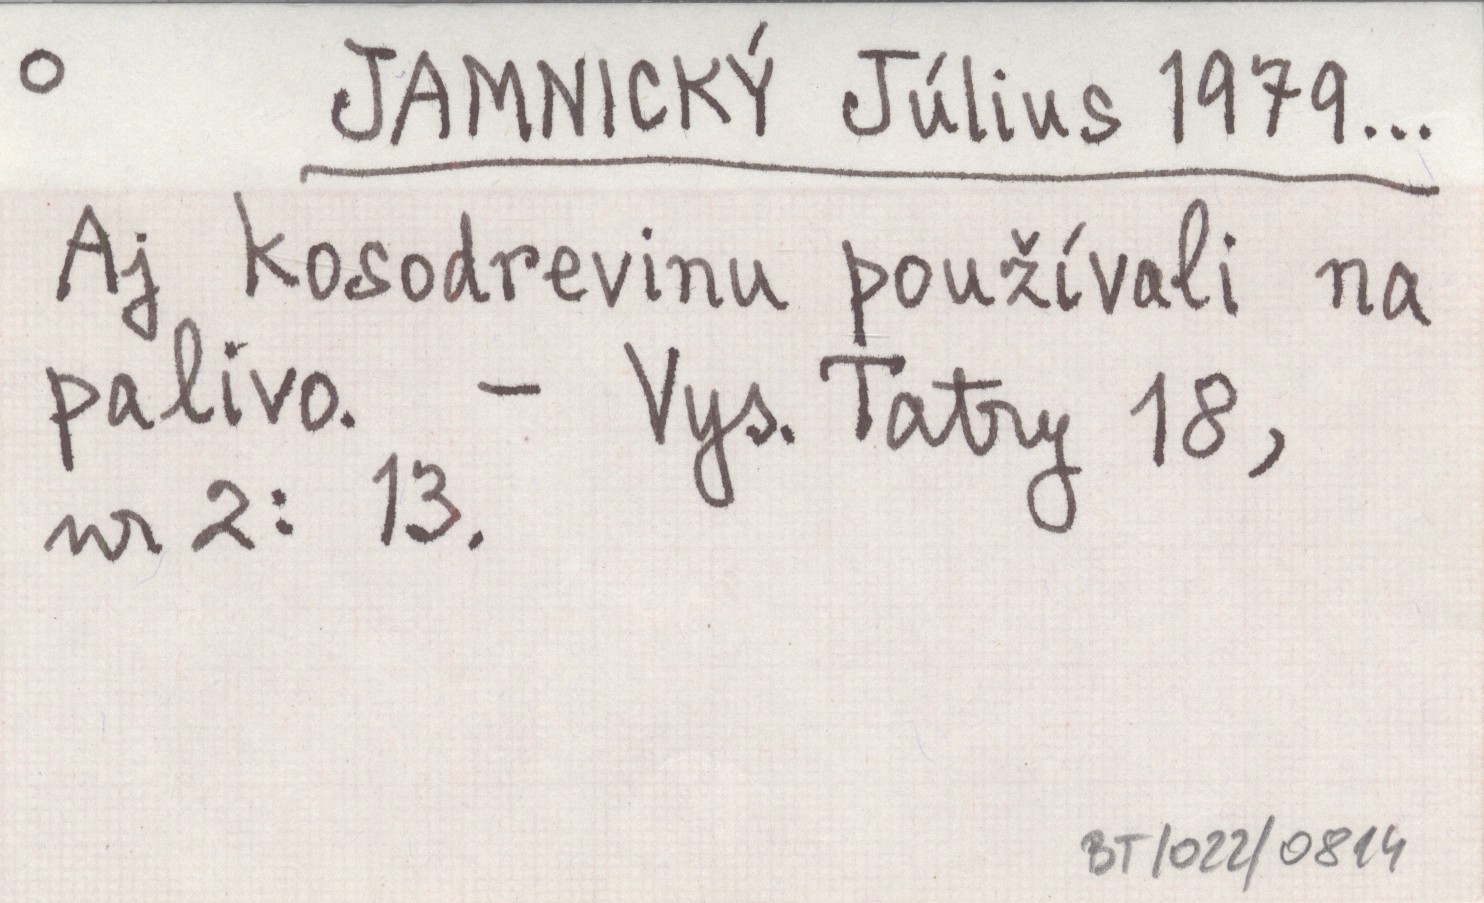 JAMNICKÝ Július 1979...
Aj kosodrevinu používali na
palivo. - Vys. Tatry 18,
nr 2: 13.
BT/022/0814